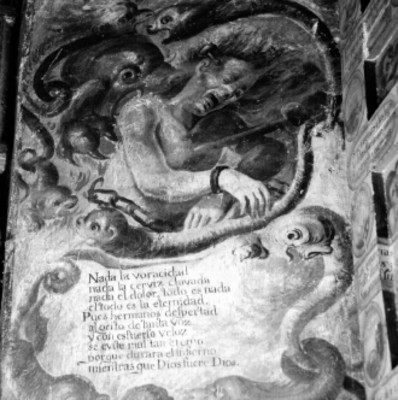 Nada la voracidad
nada la cerviz clavada
nada el dolor, todo es nada
el todo es la eternidad.
Pues hermanos despertad
al grito de tanta voz
y con esfuerzo veloz
se evite mal tan eterno
porque durara el infierno
mientras que Dios fuere Dios.